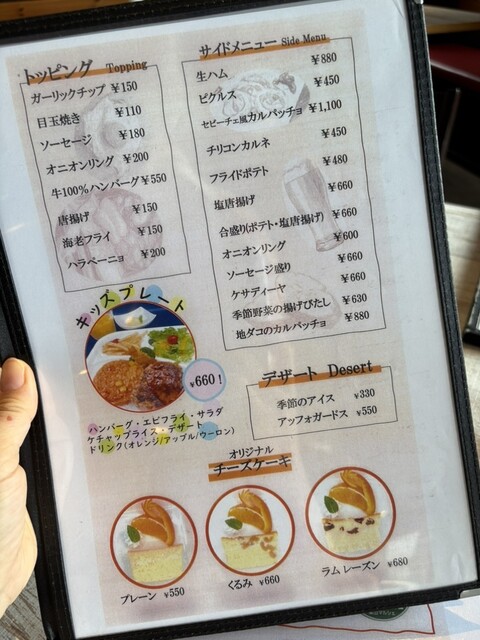 トッピング Topping
ガーリックチップ ¥150
目玉焼き ¥110
ソーセージ ¥180
オニオンリング ¥200
牛100%ハンバーグ ¥550
唐揚げ ¥150
海老フライ ¥150
ハラペーニョ ¥200
サイドメニュー Side Menu
生ハム ¥880
ピクルス ¥450
セビーチェ風カルパッチョ ¥1,100
チリコンカルネ ¥450
フライドポテト ¥480
塩唐揚げ ¥660
合盛り(ポテト・塩唐揚げ) ¥660
オニオンリング ¥600
ソーセージ盛り ¥660
ケサディーヤ ¥660
季節野菜の揚げびたし ¥630
地ダコのカルパッチョ ¥880
キッズプレート
¥660!
ハンバーグ・エビフライ・サラダ
ケチャップライス・デザート
ドリンク(オレンジ/アップル/ウーロン)
デザート Desert
季節のアイス ¥330
アッフォガードス ¥550
オリジナル
チーズケーキ
プレーン ¥550
くるみ ¥660
ラムレーズン ¥680